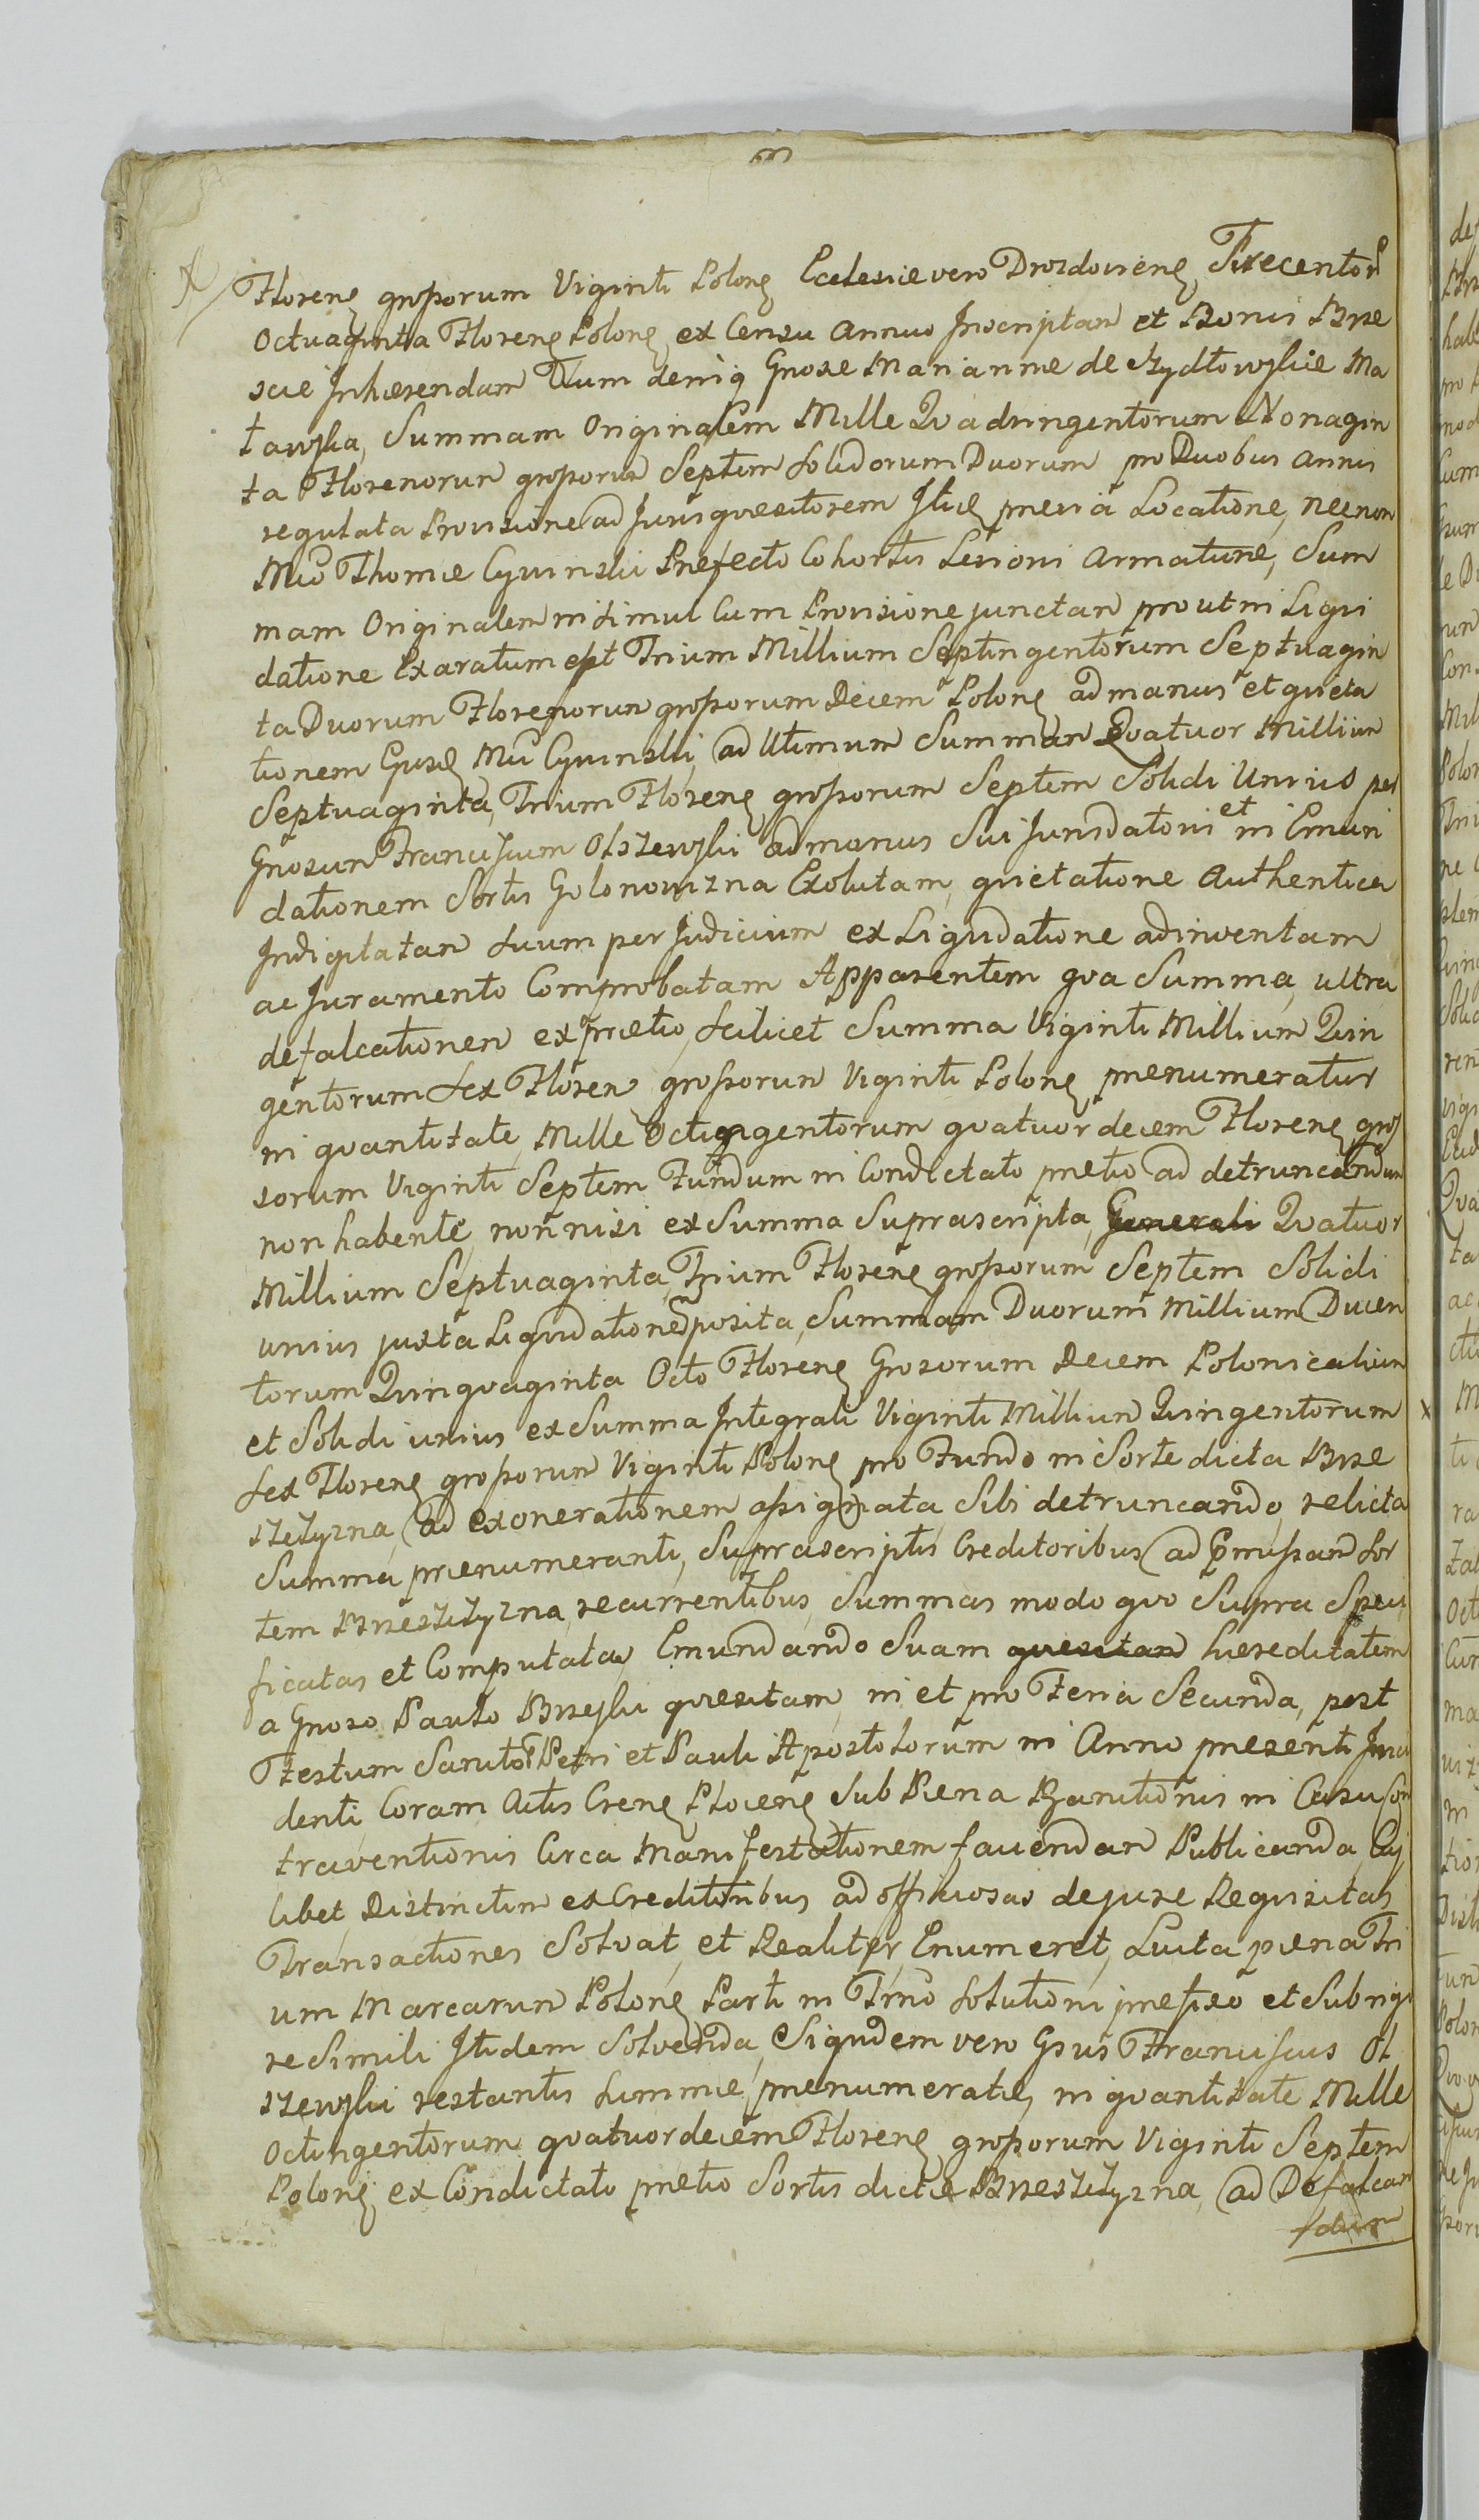 Florenę grossorum Viginti Polonę Ecclesiæ vero Drozdoviensę Trecentor
Octuaginta Florenę Polonę ex Censu annuo Inscriptam et Bonis Brze
sciæ Inhærendam Tum deniq Gnosæ Mariannæ de Szydłowskie Ma
tawska, Summam Originalem Mille Quadringentorum Nonagin
ta Florenorum grossorum Septem Solidorum Duorum pro Duobus annis
regulata Provisione ad Jurisquæsitorem Itiδ previa Locatione, necnon
Mco Thomæ Cywinski Præfecto Cohortis Levioris Armaturæ, Sum
mam Originalem insimul Cum Provisione junctam prout in Liqui
datione Exaratum est Trium Millium Septingentorum Septuagin
ta Duorum Florenorum grossorum Decem Polonę ad manus et quieta
tionem Ejusδ Mci Cywinski, ad Ultimum Summam Quatuor Millium
Septuaginta, Trium Florenę grossorum Septem Solidi Unius per
Gnosum Franciscum Olszewski ad manus Sui Jurisdatoris et in Emun
dationem Sortis Golonowizna Exolutam, quietatione Authentica
Indigitatam suum per Judicium ex Liquidatione adinventam
ac Juramento Comprobatam Apparentem qua Summa, ultra
defalcationem ex prætio, scilicet Summa Viginti Millium Quin
gentorum sex Floren grossorum Viginti Polonę prænumeratur
in quantitate, Mille Octingentorum quatuordecem Florenę gros
sorum Viginti Septem Fundum in Condictato pretio ad detruncandum
non habente, nonnisi ex Summa Suprascripta, Generali Quatuor
Millium Septuaginta, Trium Florenę grossorum Septem Solidi
unius juxta Liquidationem posita, Summam Duorum Millium Ducen
torum Quinquaginta Octo Florenę Grosorum Decem Polonicalium
et Solidi unius ex Summa Integrali Viginti Millium Quingentorum
sex Florenę grossorum Viginti Polonę pro Fundo in Sorte dicta Brze
szczyzna, ad exonerationem assignata, Sibi detruncando, relicta
Summa prænumeranti, Suprascriptis Creditoribus ad præmissam Sor
tem Brzeszczyzna, recurrentibus, Summas modo quo Supra Speci
ficatas et Computatas Emundando Suam quesitam hæreditatem
a Gnoso Paulo Brzeski quæsitam, in et pro Feria Secunda, post
Festum Sanctor Petri et Pauli Apostolorum in Anno presenti Inci
denti, Coram Actis Crenę Plocenę Sub Pæna Banitionis in Casu Con
traventionis Circa Manifestationem faciendam Publicanda, Cuj
libet Distinctim ex Creditoribus ad officiosas de jure Requisitas
Transactiones Solvat, et Realiter, Enumeret, Luita pæna Tri
um Marcarum Polonę Parti in Trno solutioni præfixo et Sub rigo
re Simili Itidem Solvenda, Siquidem vero Gsus Franciscus Ol
szewski restantis summæ, prænumeratæ, in quantitate Mille
Octingentorum quatuordecem Florenę grossorum Viginti Septem
Polonę, ex Condictato pretio Sortis dictæ Brzeszczyzna, ad Defalcan
dum